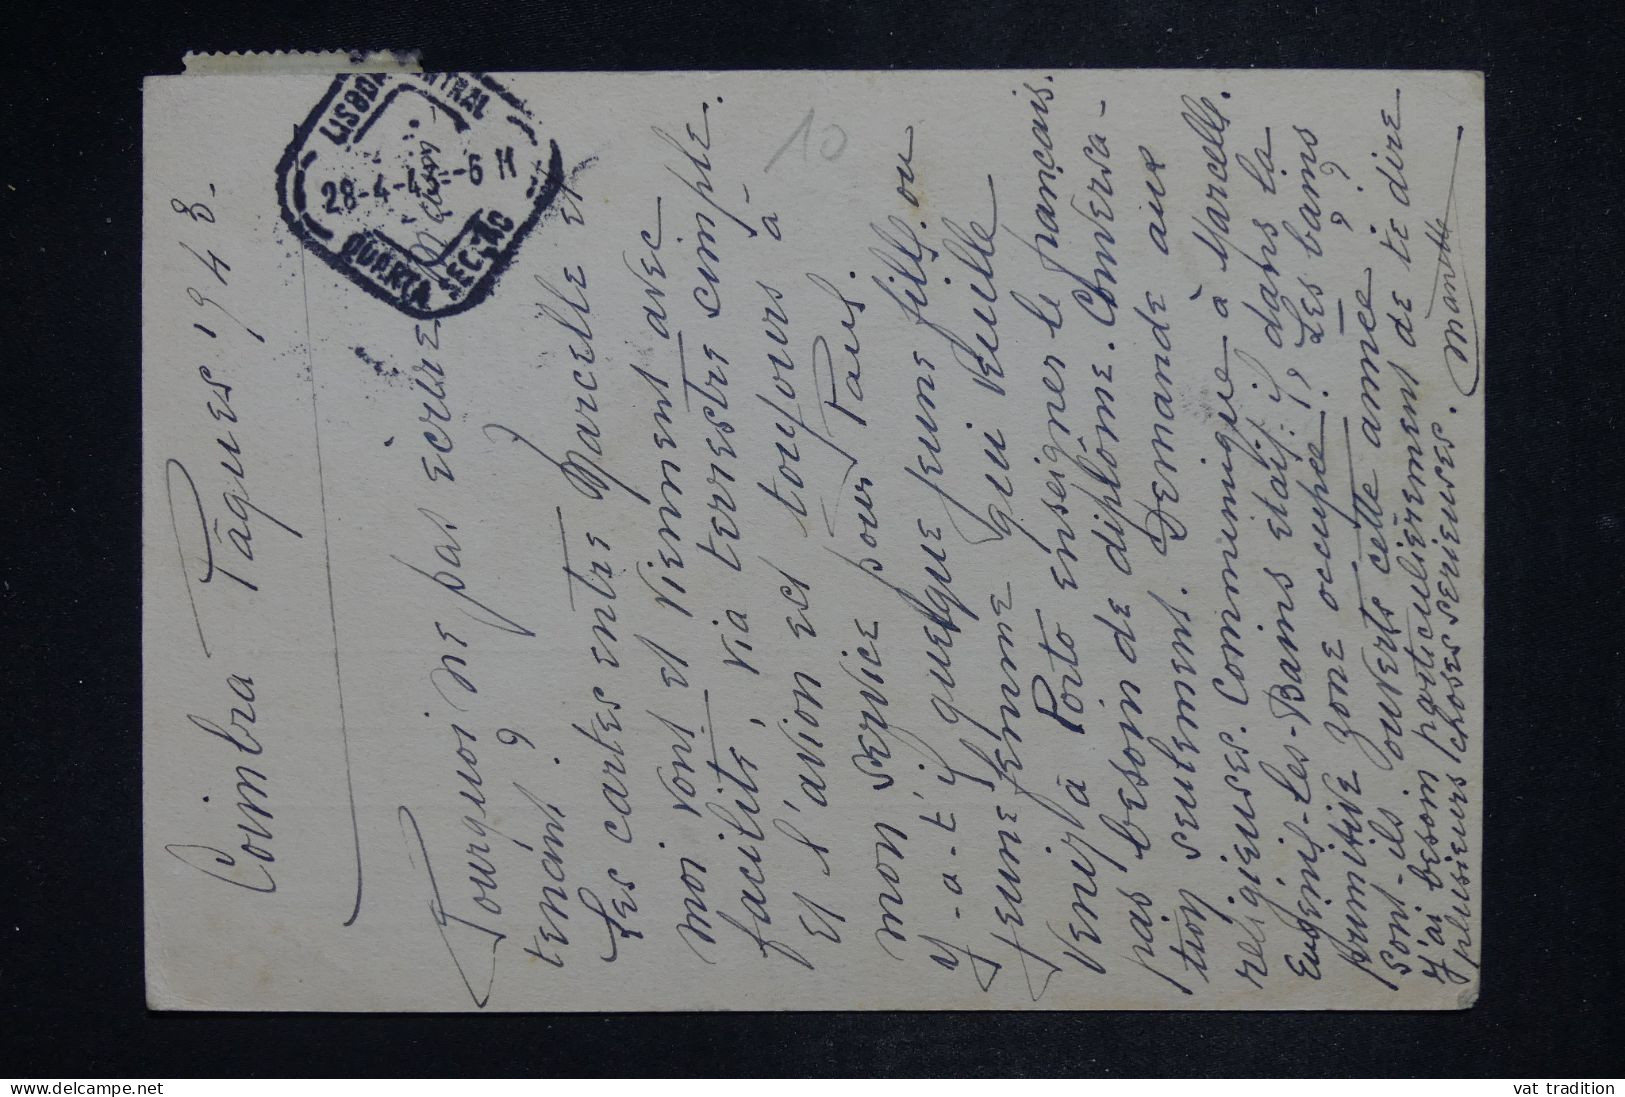 Coimbra Pâques 1943.
Pourquoi ne pas écrire
tenant?
Les cartes entre Marcelle et
moi vont et viennent avec
facilité, via terrestre simple
et l'avion est toujours à
mon service pour Paul.
Y-a-t'il quelque jeune fille ou
jeune femme qui veuille
venir à Porto enseigner le français.
pas besoin de diplôme. Conversa-
tion seulement. Demande aux
religieuses. Communique à Marcelle.
Eugenie-les-Bains était-il dans la
primitive zone occupée? Les bains
sont-ils ouverts cette année?
J'ai besoin particulièrement de te dire
plusieurs choses sérieuses.
LISBOA CENTRAL
28-4-43 -6 M
QUARTA SECÇÃO
10
delcampe.net
vat tradition